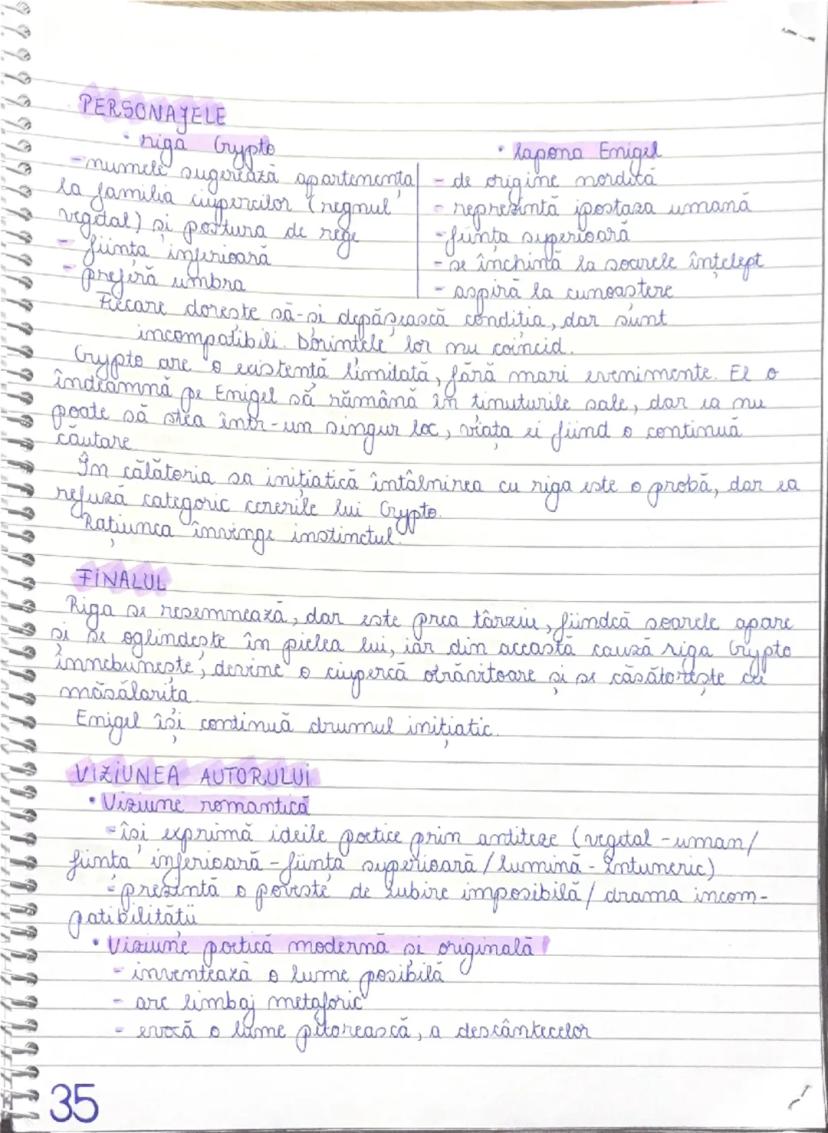 PERSONAJELE
• riga Crypto
- numele sugerează apartenența
la familia ciupercilor (regnul
vegetal) și postura de rege
- ființă inferioară
- preferă umbra
• lapona Enigel
- de origine nordică
- reprezintă ipostaza umană
- ființă superioară
- se închină la soarele înțelept
- aspiră la cunoaștere
Fiecare dorește să-și depășească condiția, dar sunt
incompatibili. Dorințele lor nu coincid.
Crypto are o existență limitată, fără mari evenimente. El o
îndeamnă pe Enigel să rămână în ținuturile sale, dar ea nu
poate să stea într-un singur loc, viața ei fiind o continuă
căutare.
În călătoria sa inițiatică întâlnirea cu riga este o probă, dar ea
refuză categoric cererile lui Crypto.
Rațiunea învinge instinctul.
FINALUL
Riga se resemnează, dar este prea târziu, fiindcă soarele apare
și se oglindește în pielea lui, iar din această cauză riga Crypto
înnebunește, devine o ciupercă otrăvitoare și se căsătorește cu
măsălarița.
Enigel își continuă drumul inițiatic.
VIZIUNEA AUTORULUI
• Viziune romantică
- își exprimă ideile poetice prin antiteze (vegetal - uman/
ființă inferioară - ființă superioară / lumină - întuneric)
- prezintă o poveste de iubire imposibilă / drama incom-
patibilității
• Viziune poetică modernă și originală
- inventează o lume posibilă
- are limbaj metaforic
- evocă o lume pitorească, a descântecelor
35